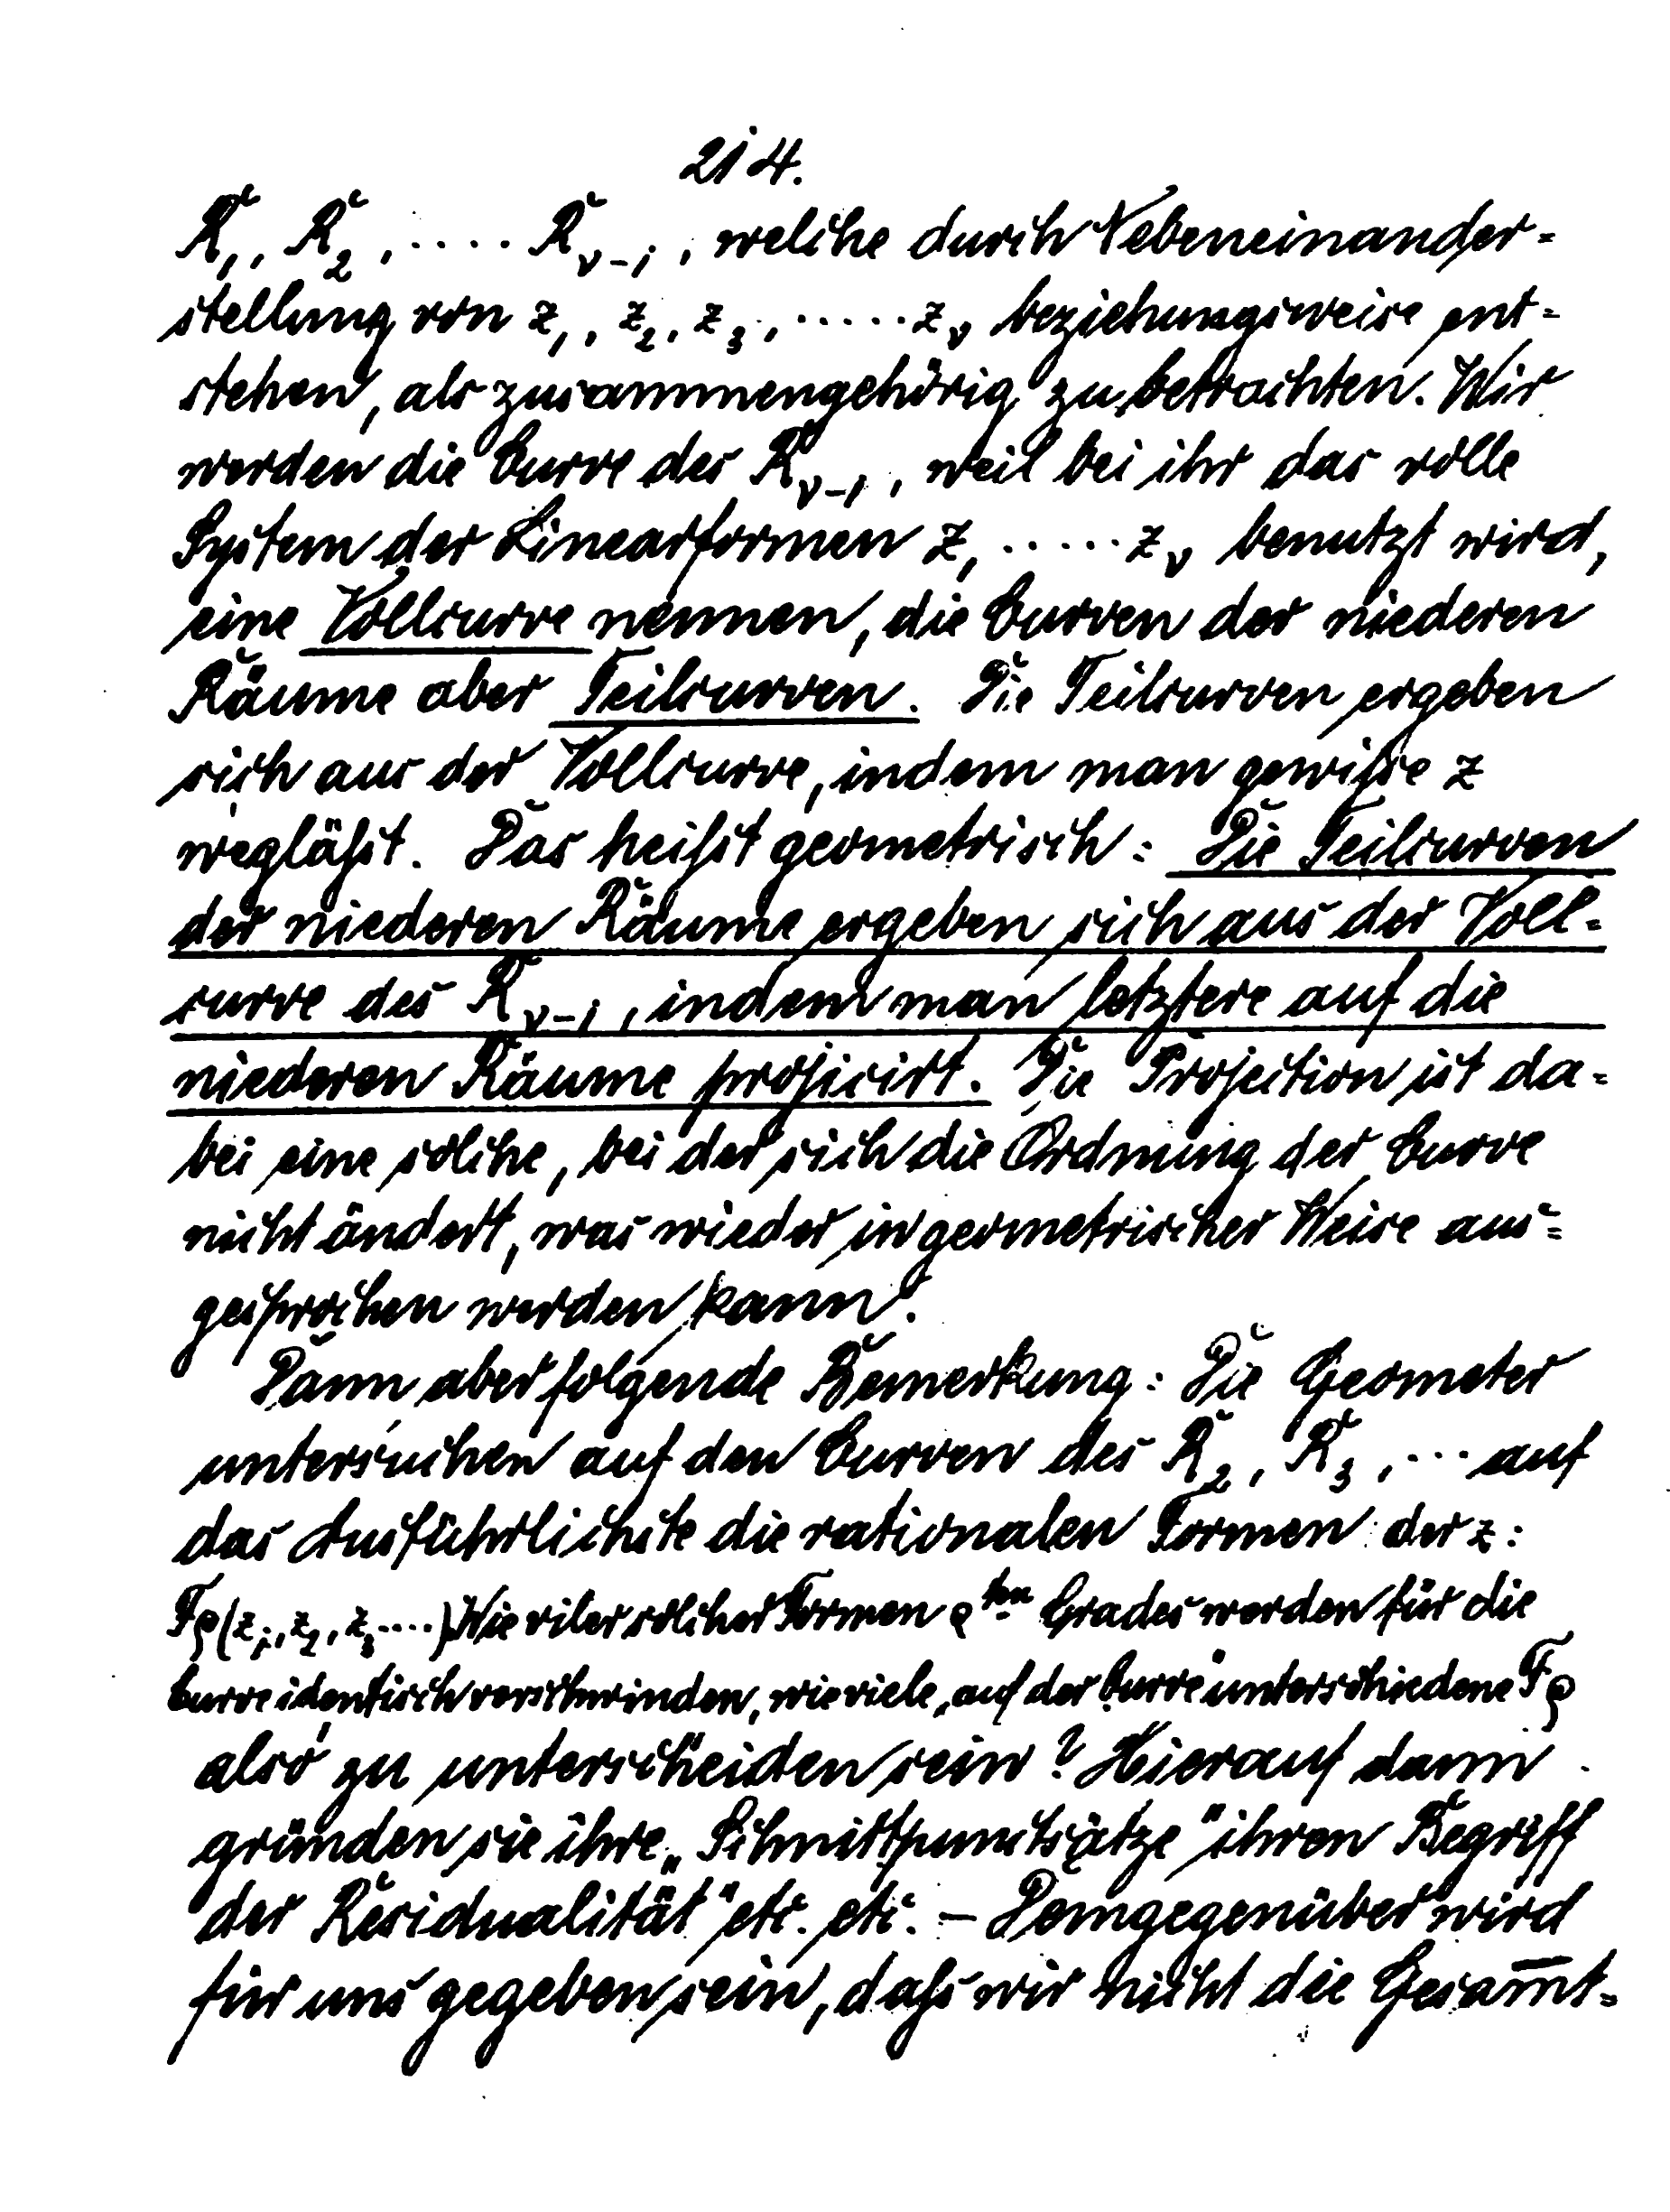 214.
R₁, R₂, .... R_{ν-1}, welche durch Nebeneinander-
stellung von z₁, z₂, z₃, ..... z_ν beziehungsweise ent-
stehen, als zusammengehörig zu betrachten. Wir
werden die Curve des R_{ν-1}, weil bei ihr das volle
System der Linearformen z₁ ..... z_ν benutzt wird,
eine Vollcurve nennen, die Curven der niederen
Räume aber Teilcurven. Die Teilcurven ergeben
sich aus der Vollcurve, indem man gewisse z
wegläßt. Das heißt geometrisch: Die Teilcurven
der niederen Räume ergeben sich aus der Voll-
curve des R_{ν-1}, indem man letztere auf die
niederen Räume projicirt. Die Projection ist da-
bei eine solche, bei der sich die Ordnung der Curve
nicht ändert, was wieder in geometrischer Weise aus-
gesprochen werden kann.
Dann aber folgende Bemerkung: Die Geometer
untersuchen auf den Curven des R₂, R₃, ... auf
das Ausführlichste die rationalen Formen der z:
F_ρ(z₁, z₂, z₃ ....). Wie viler solcher Formen ρ^{ten} Grades werden für die
Curve identisch verschwinden, wieviele, auf der Curve unterschiedene F_ρ
also zu unterscheiden sein? Hierauf dann
gründen sie ihre „Schnittpunctsätze" ihren Begriff
der Residualität" etc. etc. — Demgegenüber wird
für uns gegeben sein, daß wir nicht die Gesam̄t-